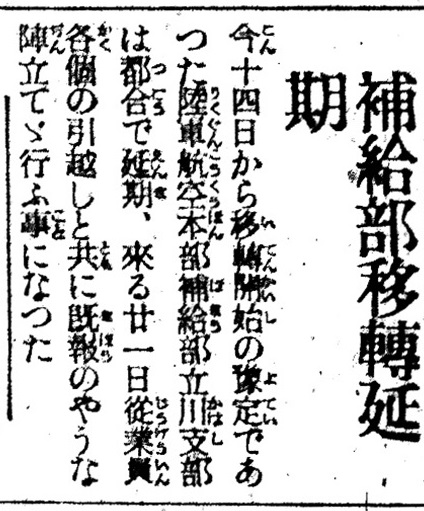 補給部移轉延
期
今十四日から移轉開始の豫定であ
つた陸軍航空本部補給部立川支部
は都合で延期、來る廿一日從業員
各個の引越しと共に既報のやうな
陣立てゞ行ふ事になつた